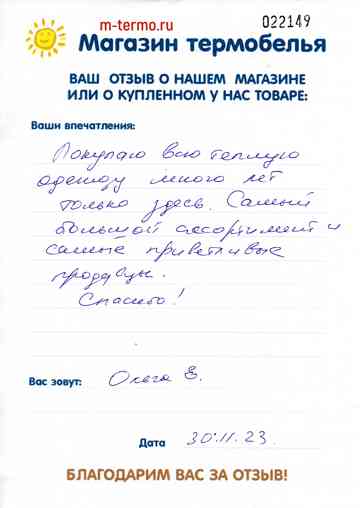 m-termo.ru
022149
Магазин термобелья
ВАШ ОТЗЫВ О НАШЕМ МАГАЗИНЕ
ИЛИ О КУПЛЕННОМ У НАС ТОВАРЕ:
Ваши впечатления:
Покупаю всю теплую
одежду много лет
только здесь. Самый
большой ассортимент и
самые приветливые
продавцы.
Спасибо!
Вас зовут: Е.
Дата 30.11.23
БЛАГОДАРИМ ВАС ЗА ОТЗЫВ!